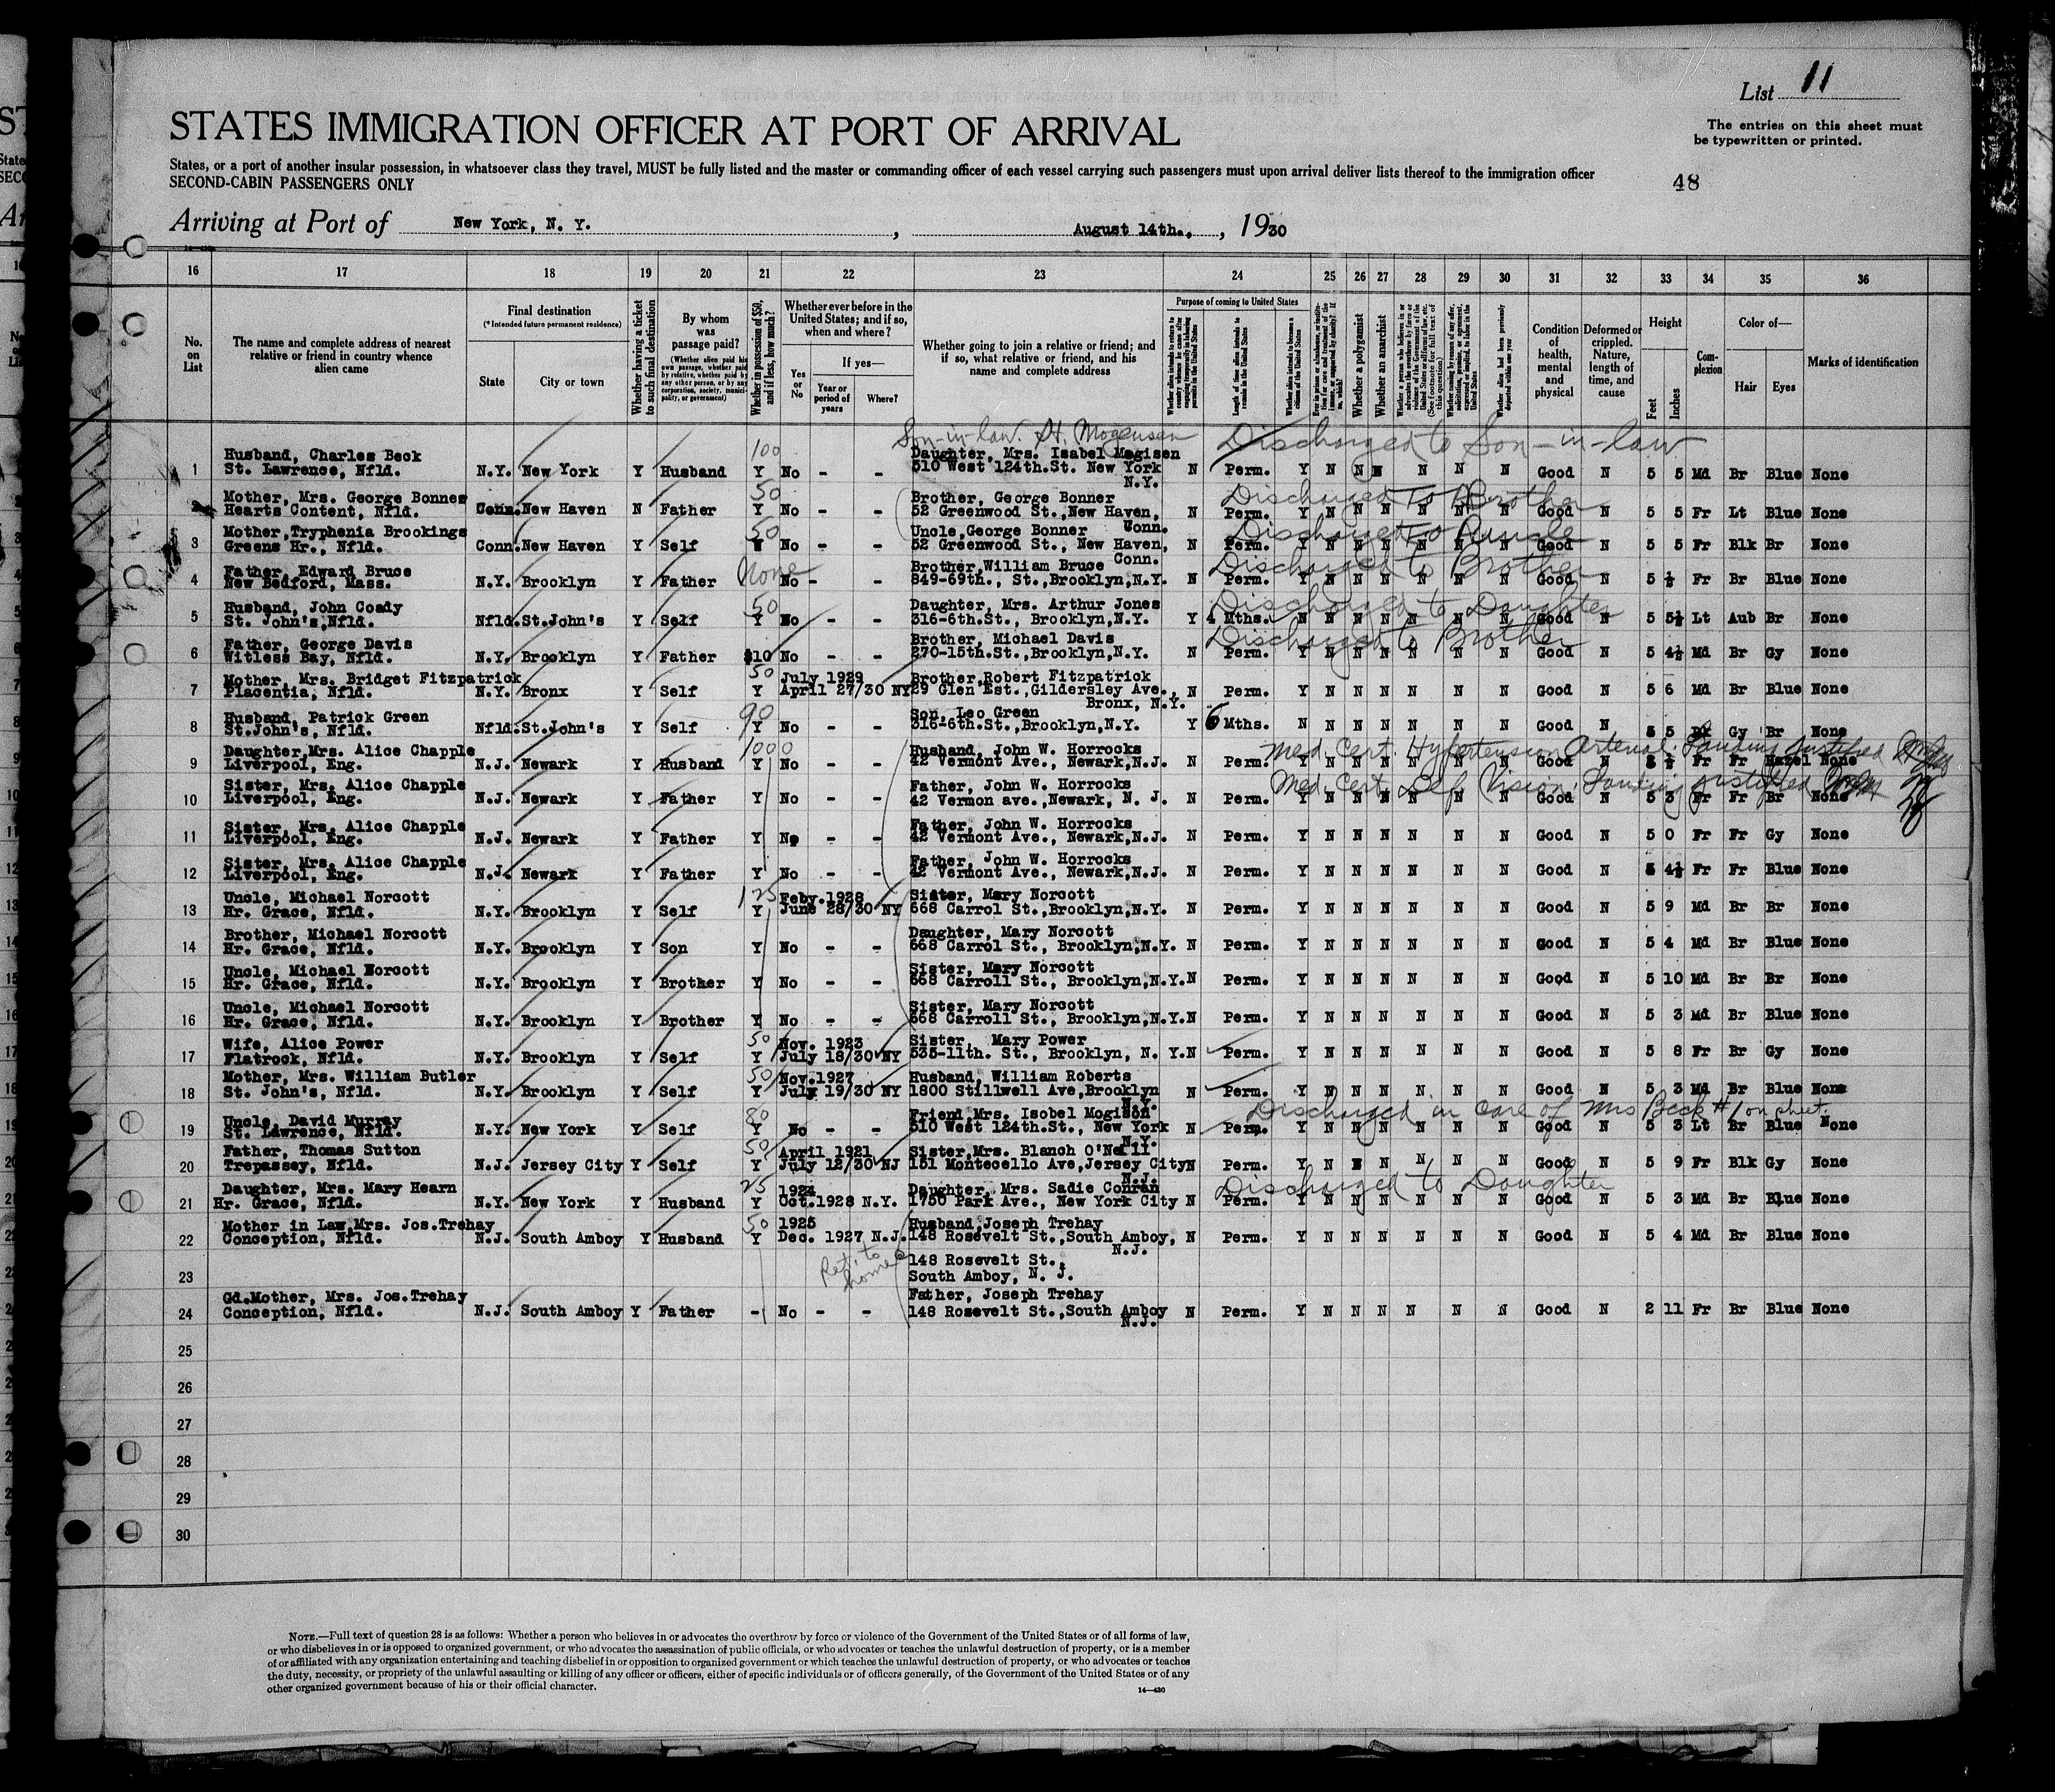 List 11
The entries on this sheet must
be typewritten or printed.
STATES IMMIGRATION OFFICER AT PORT OF ARRIVAL
States, or a port of another insular possession, in whatsoever class they travel, MUST be fully listed and the master or commanding officer of each vessel carrying such passengers must upon arrival deliver lists thereof to the immigration officer
SECOND-CABIN PASSENGERS ONLY
48
Arriving at Port of New York, N. Y. , August 14th., , 1930
16 17 18 19 20 21 22 23 24 25 26 27 28 29 30 31 32 33 34 35 36
No. on List
The name and complete address of nearest relative or friend in country whence alien came
Final destination
(*Intended future permanent residence)
State
City or town
Whether having a ticket to such final destination
By whom was passage paid?
(Whether alien paid his own passage, whether paid by relative, whether paid by any other person, or by any corporation, society, municipality, or government)
Whether in possession of $50, and if less, how much?
Whether ever before in the United States; and if so, when and where?
Yes or No
If yes—
Year or period of years
Where?
Whether going to join a relative or friend; and if so, what relative or friend, and his name and complete address
Purpose of coming to United States
Length of time alien intends to remain in the United States
Whether alien intends to become a citizen of the United States
Whether a polygamist
Whether an anarchist
Condition of health, mental and physical
Deformed or crippled. Nature, length of time, and cause
Height
Feet
Inches
Complexion
Color of—
Hair
Eyes
Marks of identification
Son-in-law. H. Mogensen Discharged to Son-in-law
100
1 Husband, Charles Beck Daughter, Mrs. Isabel Mogisen
St. Lawrence, Nfld. N.Y. New York Y Husband Y No - - 510 West 124th.St. New York N Perm. Y N N N N N N Good N 5 5 Md Br Blue None
N.Y.
50 Discharged to Brother
2 Mother, Mrs. George Bonner Brother, George Bonner
Hearts Content, Nfld. Conn. New Haven N Father Y No - - 52 Greenwood St., New Haven, N Perm. Y N N N N N N Good N 5 5 Fr Lt Blue None
Conn.
50 Discharged to Uncle
3 Mother, Tryphenia Brookings Uncle, George Bonner
Greens Hr., Nfld. Conn. New Haven Y Self Y No - - 52 Greenwood St., New Haven, N Perm. Y N N N N N N Good N 5 5 Fr Blk Br None
Conn.
None Discharged to Brother
4 Father, Edward Bruce Brother, William Bruce
New Bedford, Mass. N.Y. Brooklyn Y Father No - - 849-69th., St., Brooklyn, N.Y. N Perm. Y N N N N N N Good N 5 ½ Fr Br Blue None
50 Discharged to Daughter
5 Husband, John Coady Daughter, Mrs. Arthur Jones
St. John's, Nfld. Nfld. St.John's Y Self Y No - - 316-6th.St., Brooklyn, N.Y. Y 4 Mths. N N N N N N N Good N 5 5½ Lt Aub Br None
Discharged to Brother
6 Father, George Davis Brother, Michael Davis
Witless Bay, Nfld. N.Y. Brooklyn Y Father $10 No - - 270-15th.St., Brooklyn, N.Y. N Perm. Y N N N N N N Good N 5 4½ Md Br Gy None
50
7 Mother, Mrs. Bridget Fitzpatrick July 1929 Brother, Robert Fitzpatrick
Placentia, Nfld. N.Y. Bronx Y Self Y April 27/30 NY 29 Glen Est., Gildersley Ave., N Perm. Y N N N N N N Good N 5 6 Md Br Blue None
Bronx, N.Y.
90
8 Husband, Patrick Green Son, Leo Green
St.John's, Nfld. Nfld. St.John's Y Self Y No - - 316-6th.St., Brooklyn, N.Y. Y 6 Mths. N N N N N N N Good N 5 5 Gy Br None
1000 Med. Cert. Hypertension Arterial. Landing justified
9 Daughter, Mrs. Alice Chapple Husband, John W. Horrocks
Liverpool, Eng. N.J. Newark Y Husband Y No - - 42 Vermont Ave., Newark, N.J. N Perm. Y N N N N N N Good N Fr Fr Hazel None
Med. Cert. Def. Vision. Landing justified
10 Sister, Mrs. Alice Chapple Father, John W. Horrocks
Liverpool, Eng. N.J. Newark Y Father Y No - - 42 Vermon ave., Newark, N. J. N Perm. Y N N N N N N Good N 5 3 Fr Fr Br None
11 Sister, Mrs. Alice Chapple Father, John W. Horrocks
Liverpool, Eng. N.J. Newark Y Father Y No - - 42 Vermont Ave., Newark, N.J. N Perm. Y N N N N N N Good N 5 0 Fr Fr Gy None
12 Sister, Mrs. Alice Chapple Father, John W. Horrocks
Liverpool, Eng. N.J. Newark Y Father Y No - - 42 Vermont Ave., Newark, N.J. N Perm. Y N N N N N N Good N 5 4½ Fr Fr Blue None
125
13 Uncle, Michael Norcott Feby.1928 Sister, Mary Norcott
Hr. Grace, Nfld. N.Y. Brooklyn Y Self Y June 28/30 NY 668 Carrol St., Brooklyn, N.Y. N Perm. Y N N N N N N Good N 5 9 Md Br Br None
14 Brother, Michael Norcott Daughter, Mary Norcott
Hr. Grace, Nfld. N.Y. Brooklyn Y Son Y No - - 668 Carrol St., Brooklyn, N.Y. N Perm. Y N N N N N N Good N 5 4 Md Br Blue None
15 Uncle, Michael Norcott Sister, Mary Norcott
Hr. Grace, Nfld. N.Y. Brooklyn Y Brother Y No - - 668 Carroll St., Brooklyn, N.Y. N Perm. Y N N N N N N Good N 5 10 Md Br Br None
16 Uncle, Michael Norcott Sister, Mary Norcott
Hr. Grace, Nfld. N.Y. Brooklyn Y Brother Y No - - 668 Carroll St., Brooklyn, N.Y. N Perm. Y N N N N N N Good N 5 3 Md Br Blue None
50
17 Wife, Alice Power Nov. 1923 Sister, Mary Power
Flatrock, Nfld. N.Y. Brooklyn Y Self Y July 18/30 NY 535-11th. St., Brooklyn, N. Y. N Perm. Y N N N N N N Good N 5 8 Fr Br Gy None
50
18 Mother, Mrs. William Butler Nov.1927 Husband, William Roberts
St. John's, Nfld. N.Y. Brooklyn Y Self Y July 19/30 NY 1800 Stillwell Ave, Brooklyn N Perm. Y N N N N N N Good N 5 3 Md Br Blue None
N.Y.
80 Discharged in care of Mrs Beck #1 on sheet.
19 Uncle, David Murray Friend, Mrs. Isobel Mogison
St. Lawrence, Nfld. N.Y. New York Y Self Y No - - 510 West 124th.St., New York N Perm. Y N N N N N N Good N 5 3 Lt Br Blue None
N.Y.
50
20 Father, Thomas Sutton April 1921 Sister, Mrs. Blanch O'Neill
Trepassey, Nfld. N.J. Jersey City Y Self Y July 12/30 NJ 151 Montecello Ave, Jersey City N Perm. Y N N N N N N Good N 5 9 Fr Blk Gy None
N.J.
25 Discharged to Daughter
21 Daughter, Mrs. Mary Hearn 1924 Daughter, Mrs. Sadie Conran
Hr. Grace, Nfld. N.Y. New York Y Husband Y Oct.1928 N.Y. 1750 Park Ave., New York City N Perm. Y N N N N N N Good N 5 3 Md Br Blue None
50
22 Mother in Law, Mrs. Jos.Trehay 1925 Husband, Joseph Trehay
Conception, Nfld. N.J. South Amboy Y Husband Y Dec. 1927 N.J. 148 Rosevelt St., South Amboy, N Perm. Y N N N N N N Good N 5 4 Md Br Blue None
N.J.
Ret. to home
23 148 Rosevelt St.,
South Amboy, N. J.
24 Gd.Mother, Mrs. Jos.Trehay Father, Joseph Trehay
Conception, Nfld. N.J. South Amboy Y Father - No - - 148 Rosevelt St., South Amboy N Perm. Y N N N N N N Good N 2 11 Fr Br Blue None
N.J.
25
26
27
28
29
30
NOTE.—Full text of question 28 is as follows: Whether a person who believes in or advocates the overthrow by force or violence of the Government of the United States or of all forms of law,
or who disbelieves in or is opposed to organized government, or who advocates the assassination of public officials, or who advocates or teaches the unlawful destruction of property, or is a member
of or affiliated with any organization entertaining and teaching disbelief in or opposition to organized government or which teaches the unlawful destruction of property, or who advocates or teaches
the duty, necessity, or propriety of the unlawful assaulting or killing of any officer or officers, either of specific individuals or of officers generally, of the Government of the United States or of any
other organized government because of his or their official character.
14—430